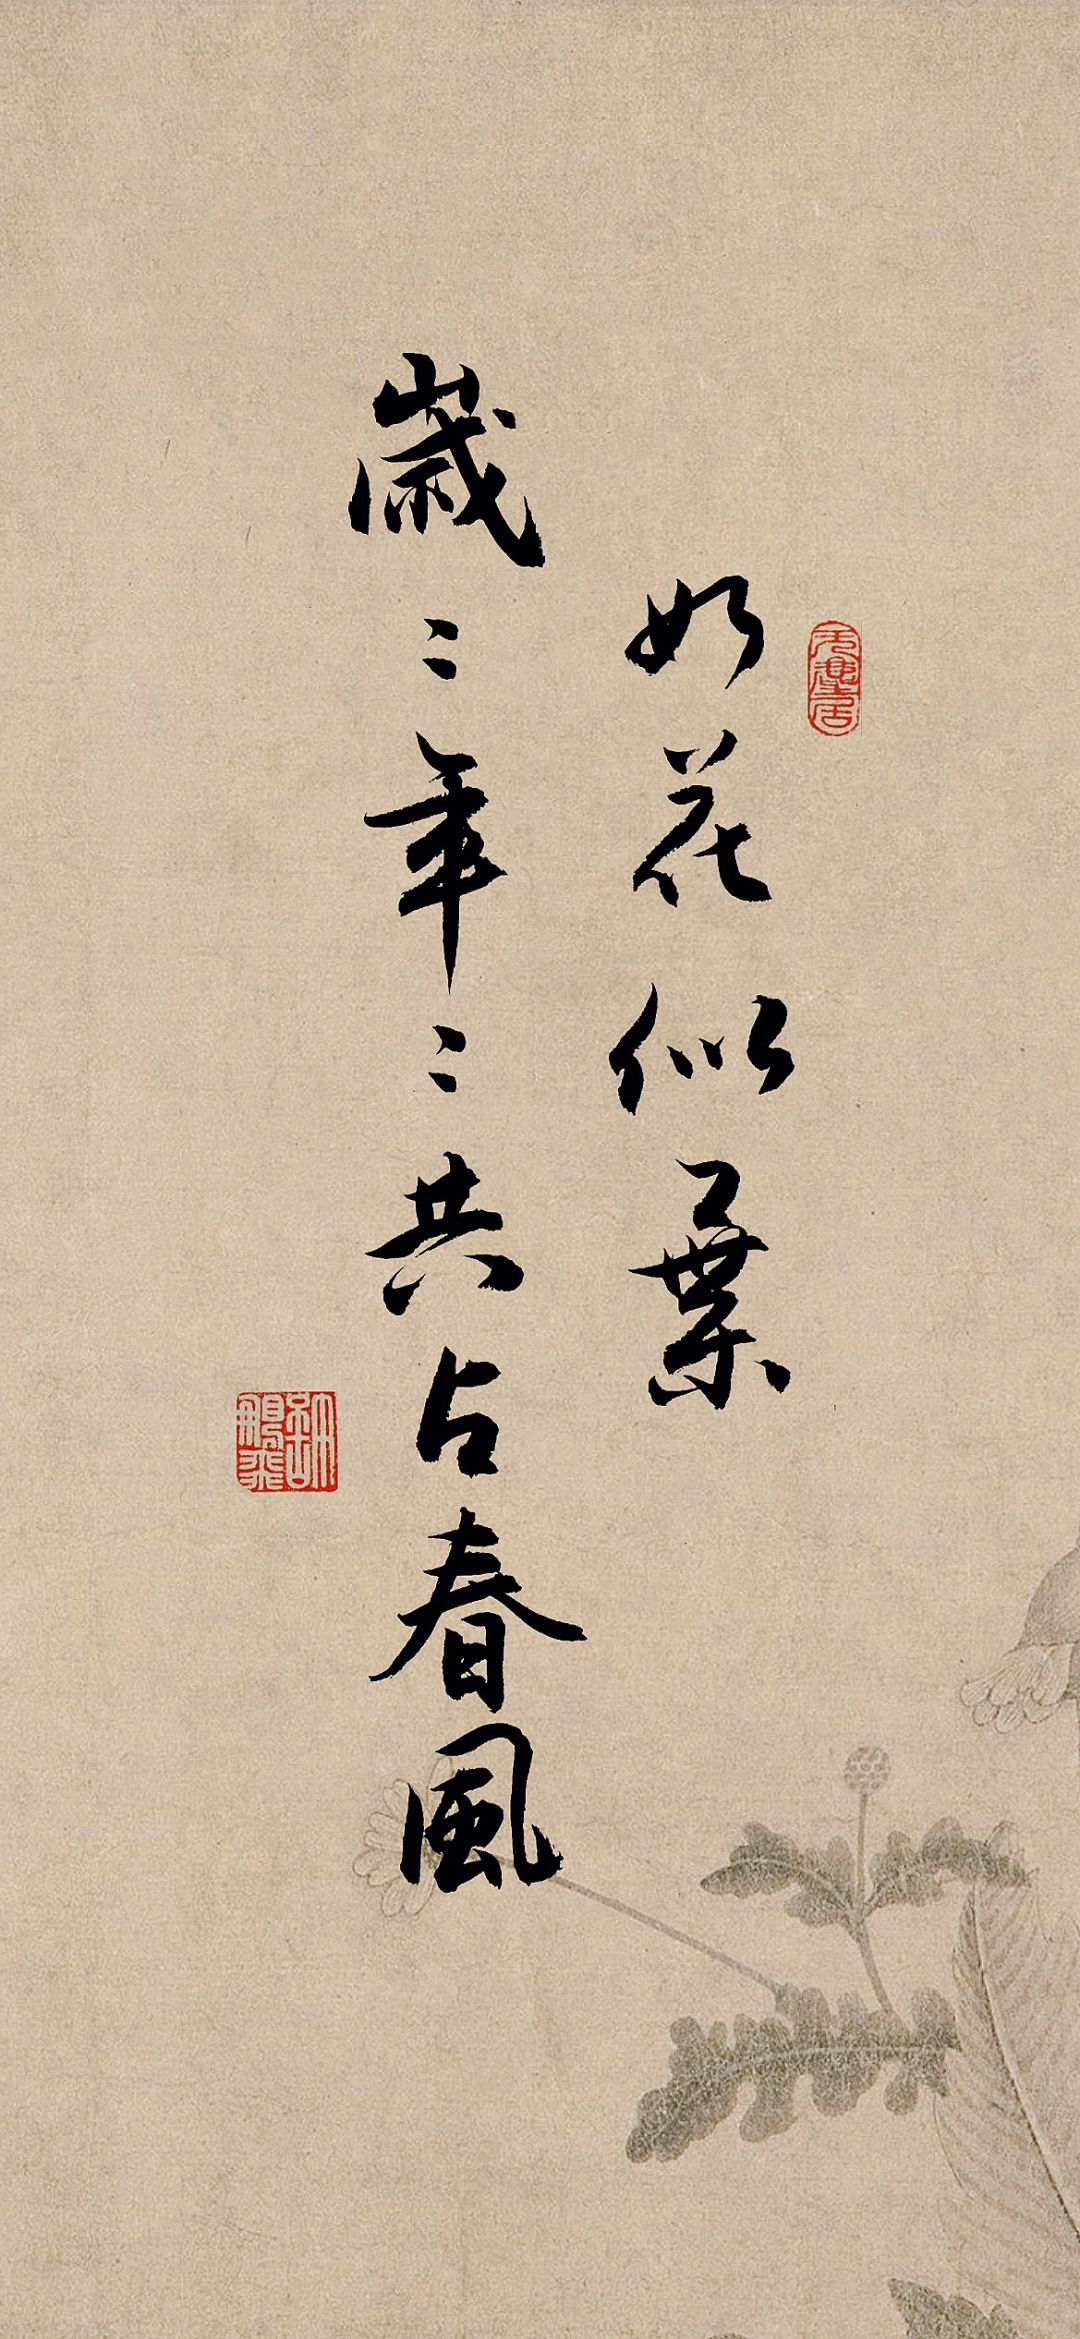 如花似葉
歲〻年〻共占春風